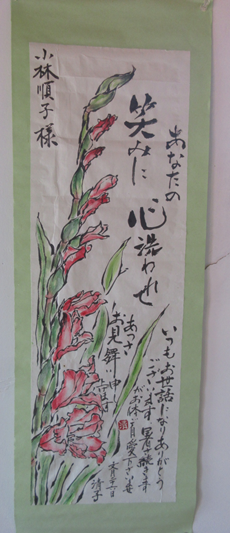 小林順子様
あなたの
笑みに
心洗われせ
いつもお世話になりありがとう
ございます 暑さ続きます
がお体ご自愛下さいませ
あつさ
お見舞い申
清子